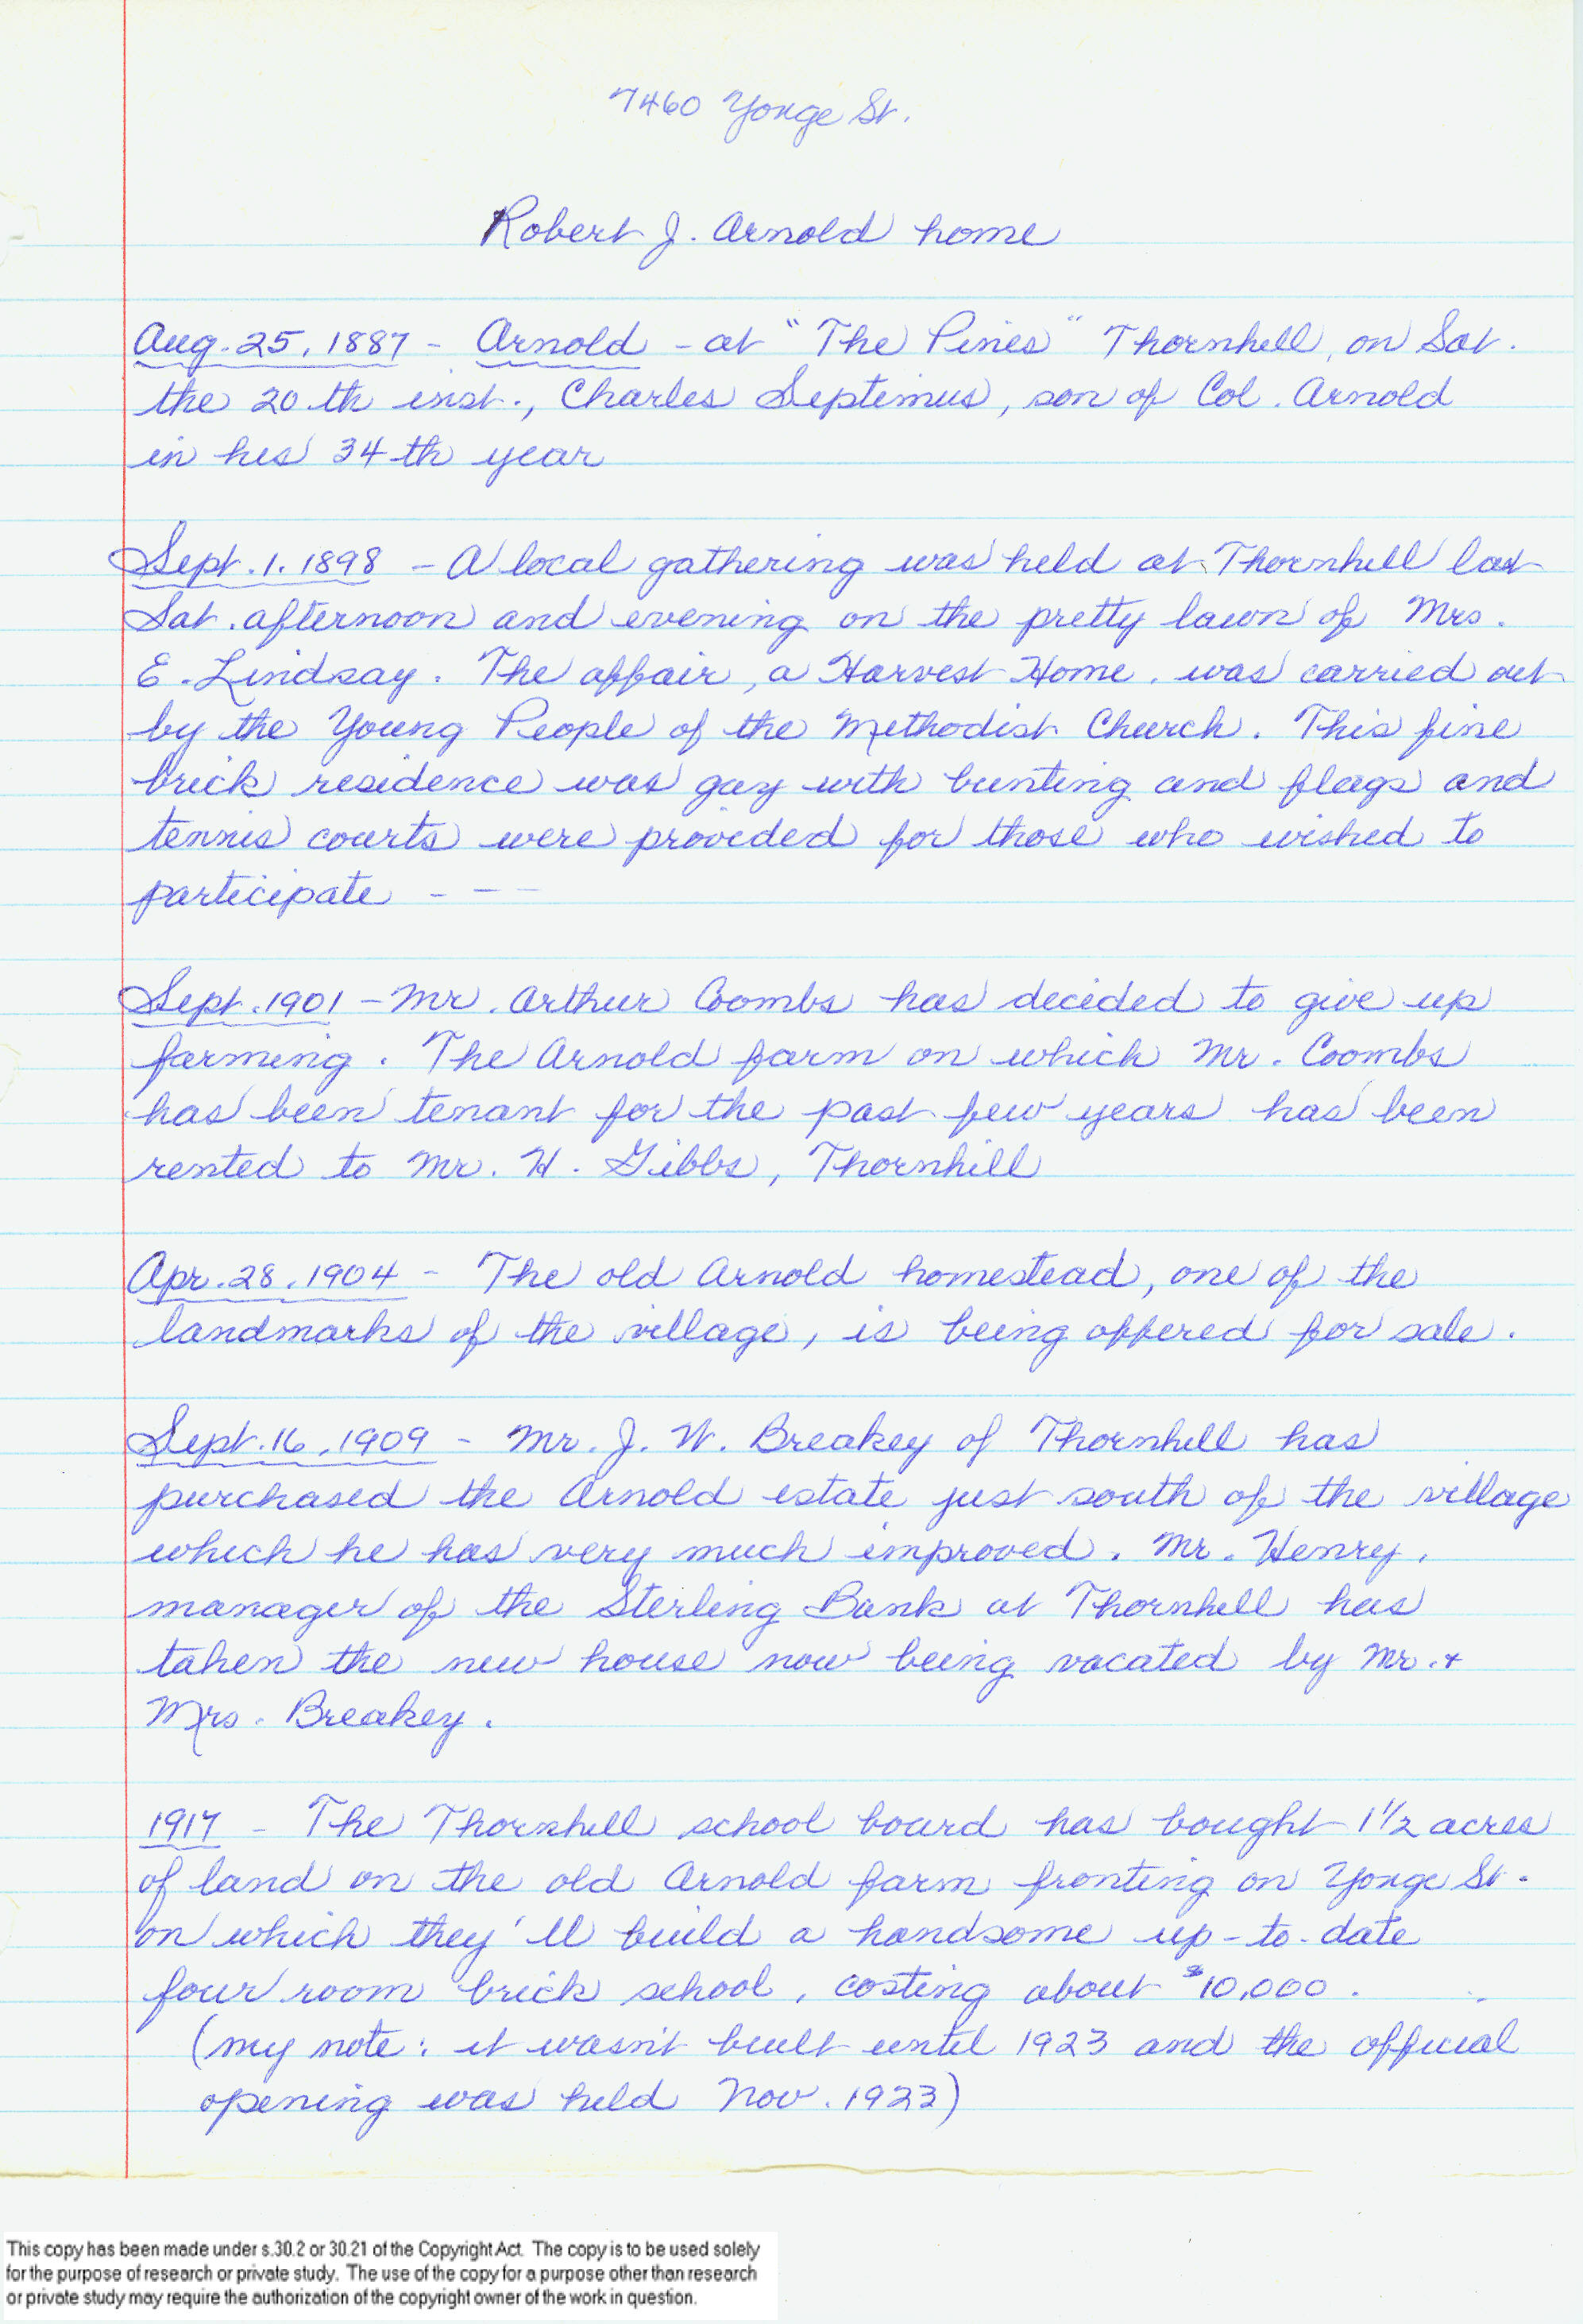 7460 Yonge St.
Robert J. Arnold home
Aug. 25, 1887 - Arnold - at "The Pines" Thornhill, on Sat.
the 20th inst., Charles Septimus, son of Col. Arnold
in his 34th year
Sept. 1. 1898 - A local gathering was held at Thornhill last
Sat. afternoon and evening on the pretty lawn of Mrs.
E. Lindsay. The affair, a Harvest Home, was carried out
by the Young People of the Methodist Church. This fine
brick residence was gay with bunting and flags and
tennis courts were provided for those who wished to
participate - - -
Sept. 1901 - Mr. Arthur Coombs has decided to give up
farming. The Arnold farm on which Mr. Coombs
has been tenant for the past few years has been
rented to Mr. H. Gibbs, Thornhill
Apr. 28, 1904 - The old Arnold homestead, one of the
landmarks of the village, is being offered for sale.
Sept. 16, 1909 - Mr. J. W. Breakey of Thornhill has
purchased the Arnold estate just south of the village
which he has very much improved. Mr. Henry,
manager of the Sterling Bank at Thornhill has
taken the new house now being vacated by Mr. +
Mrs. Breakey.
1917 - The Thornhill school board has bought 1 1/2 acres
of land on the old Arnold farm fronting on Yonge St.
on which they'll build a handsome up-to-date
four room brick school, costing about $10,000.
(my note: it wasn't built until 1923 and the official
opening was held Nov. 1923)
This copy has been made under s.30.2 or 30.21 of the Copyright Act. The copy is to be used solely
for the purpose of research or private study. The use of the copy for a purpose other than research
or private study may require the authorization of the copyright owner of the work in question.